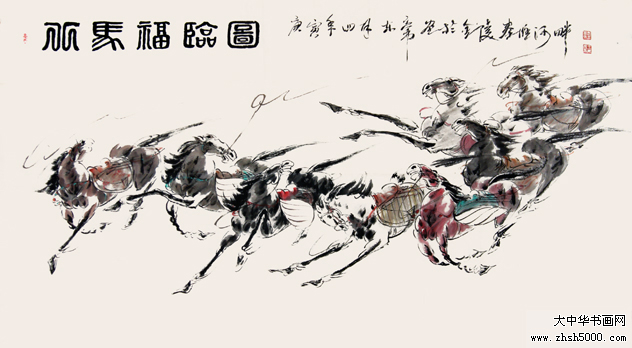 馬福臨圖
庚寅年四月 於金陵秦淮河畔
大中华书画网
www.zhsh5000.com